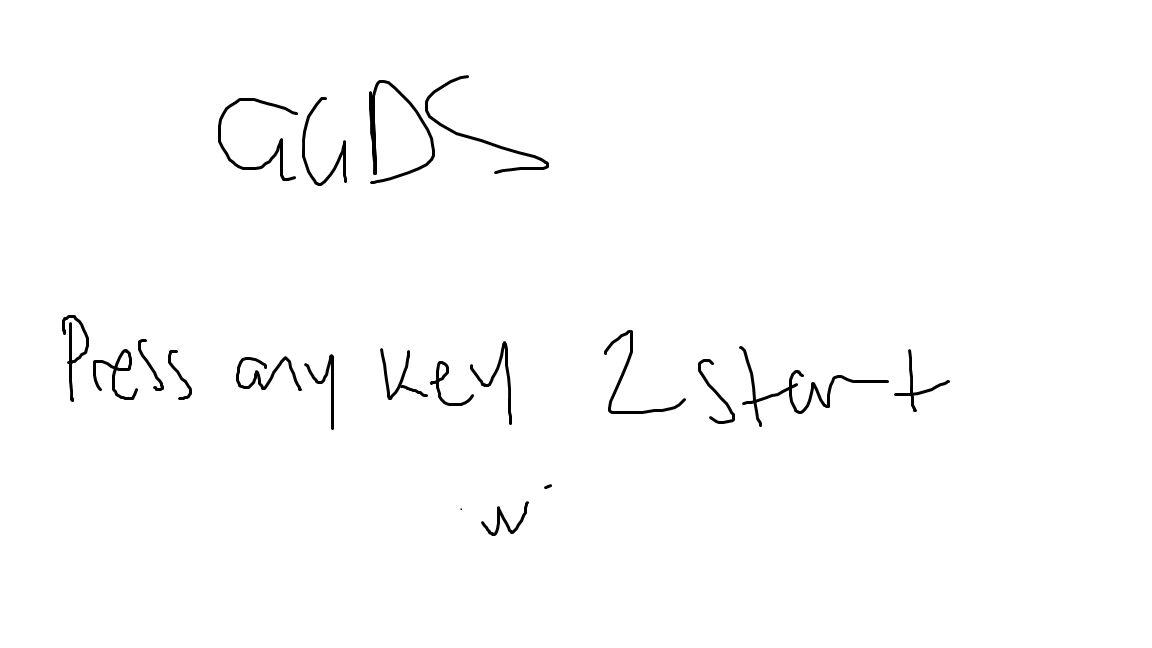 GGDS
Press any key 2 start